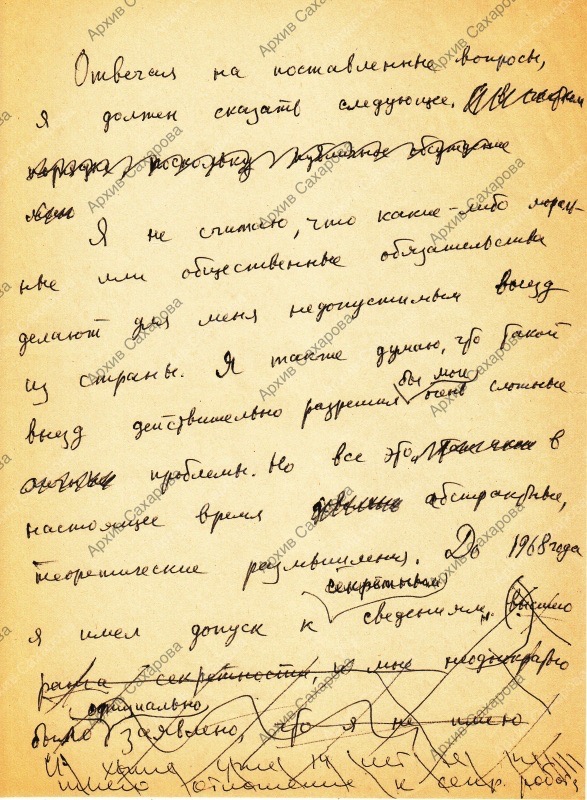 Отвечая на поставленные вопросы,
я должен сказать следующее.
поскольку обсуждение
Я не считаю, что какие-либо мораль-
ные или общественные обязательства
делают для меня недопустимым выезд
из страны. Я также думаю, что такой
бы мои
выезд действительно разрешил очень сложные
проблемы. Но все это в
настоящее время абстрактные,
теоретические размышления. До 1968 года
секретным
я имел допуск к сведениям высшего
ранга секретности, и мне неоднократно
официально
было заявлено, что я не имею
И хотя уже лет не
имею отношение к секр. работе
Архив Сахарова